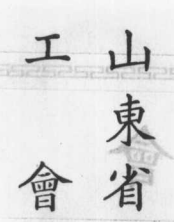 山東省
工會